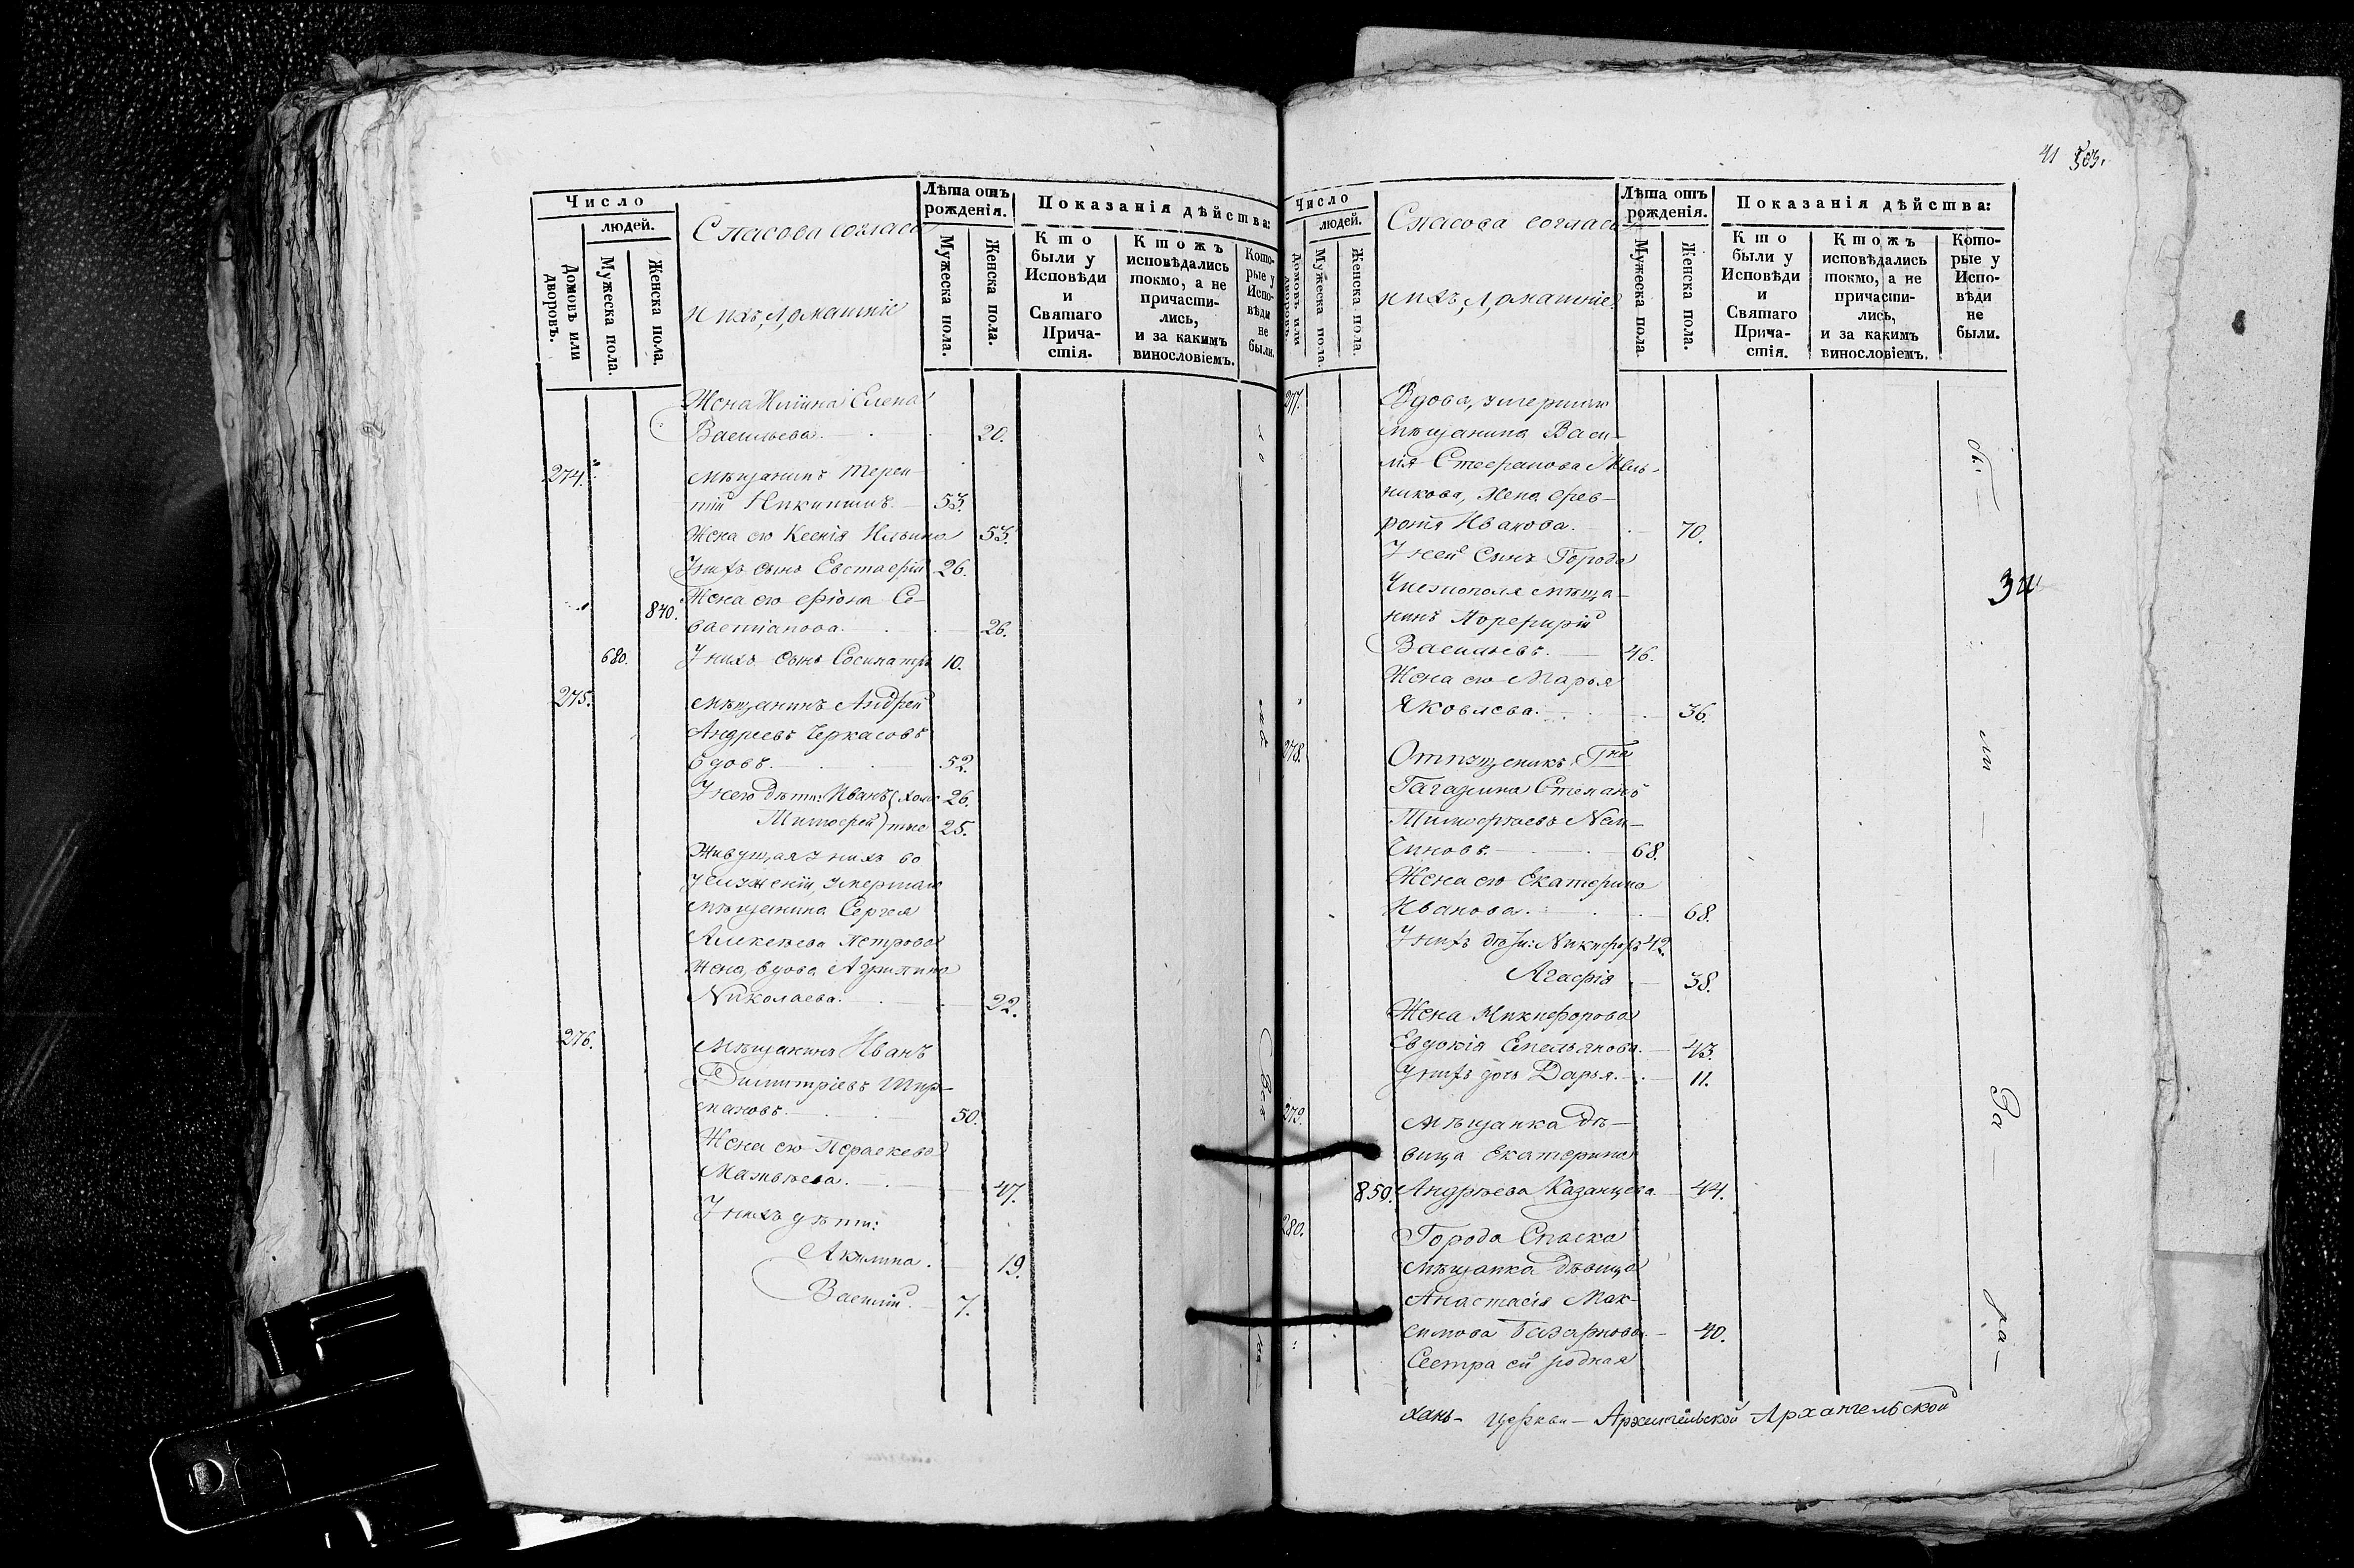 Число
людей.
Домовъ или дворовъ.
Мужеска пола.
Женска пола.
Спасова согласа
и ихъ, домашніе
Лѣта отъ рожденія.
Мужеска пола.
Женска пола.
Показанія дѣйства:
Кто были у Исповѣди и Святаго Прича-стія.
Ктожъ исповѣдались токмо, а не причасти-лись, и за какимъ винословіемъ.
Кото-рые у Испо-вѣди не были.
Жена Ильина Елена
Васильева. 20.
274. Мѣщанинъ Терен-
тій Никитинъ 53.
Жена его Ксенія Ильина 53.
У нихъ сынъ Евстафій 26.
840. Жена его Фіона Се-
вастіанова. 26.
680. У нихъ сынъ Сосипатръ 10.
275. Мѣщанинъ Андрей
Андреевъ Черкасовъ
вдовъ. 52.
У него дѣти: Иванъ холос 26.
Тимофей тые 25.
Живущая у нихъ во
услуженіи, умершаго
мѣщанина Сергея
Алексѣева Петрова
жена, вдова Агрипина
Николаева. 22.
276. Мѣщанинъ Иванъ
Димитріевъ
50.
Жена его Параскева
Матвѣева. 47.
У нихъ дѣти:
Акилина. 19.
Василій. 7.
41 503.
Число
людей.
Домовъ или дворовъ.
Мужеска пола.
Женска пола.
Спасова согласа
и ихъ, домашніе
Лѣта отъ рожденія.
Мужеска пола.
Женска пола.
Показанія дѣйства:
Кто были у Исповѣди и Святаго Прича-стія.
Ктожъ исповѣдались токмо, а не причасти-лись, и за какимъ винословіемъ.
Кото-рые у Испо-вѣди не были.
277. Вдова, умершаго
мѣщанина Васи-
лія Стефанова Мель-
никова, жена Фев-
ронія Иванова. 70.
У ней сынъ Города
Чистополя мѣща-
нинъ Порфирій
Васильевъ. 46.
Жена его Марья
Яковлева. 36.
278. Отпущеникъ Гна
Гагарина Степанъ
Тимофеевъ
68.
Жена его Екатерина
Иванова. 68.
У нихъ дѣти: Никифоръ 42.
Агафія 38.
Жена Никифорова
Евдокія Емельянова. 43.
У нихъ дочь Дарья. 11.
279. Мѣщанка дѣ-
вица Екатерина
850. Андрѣева Казанцева. 44.
280. Города Спаска
мѣщанка дѣвица
Анастасія Мак-
симова Базарнова. 40.
Сестра ей родная
церкви - Архангельской Архангельской